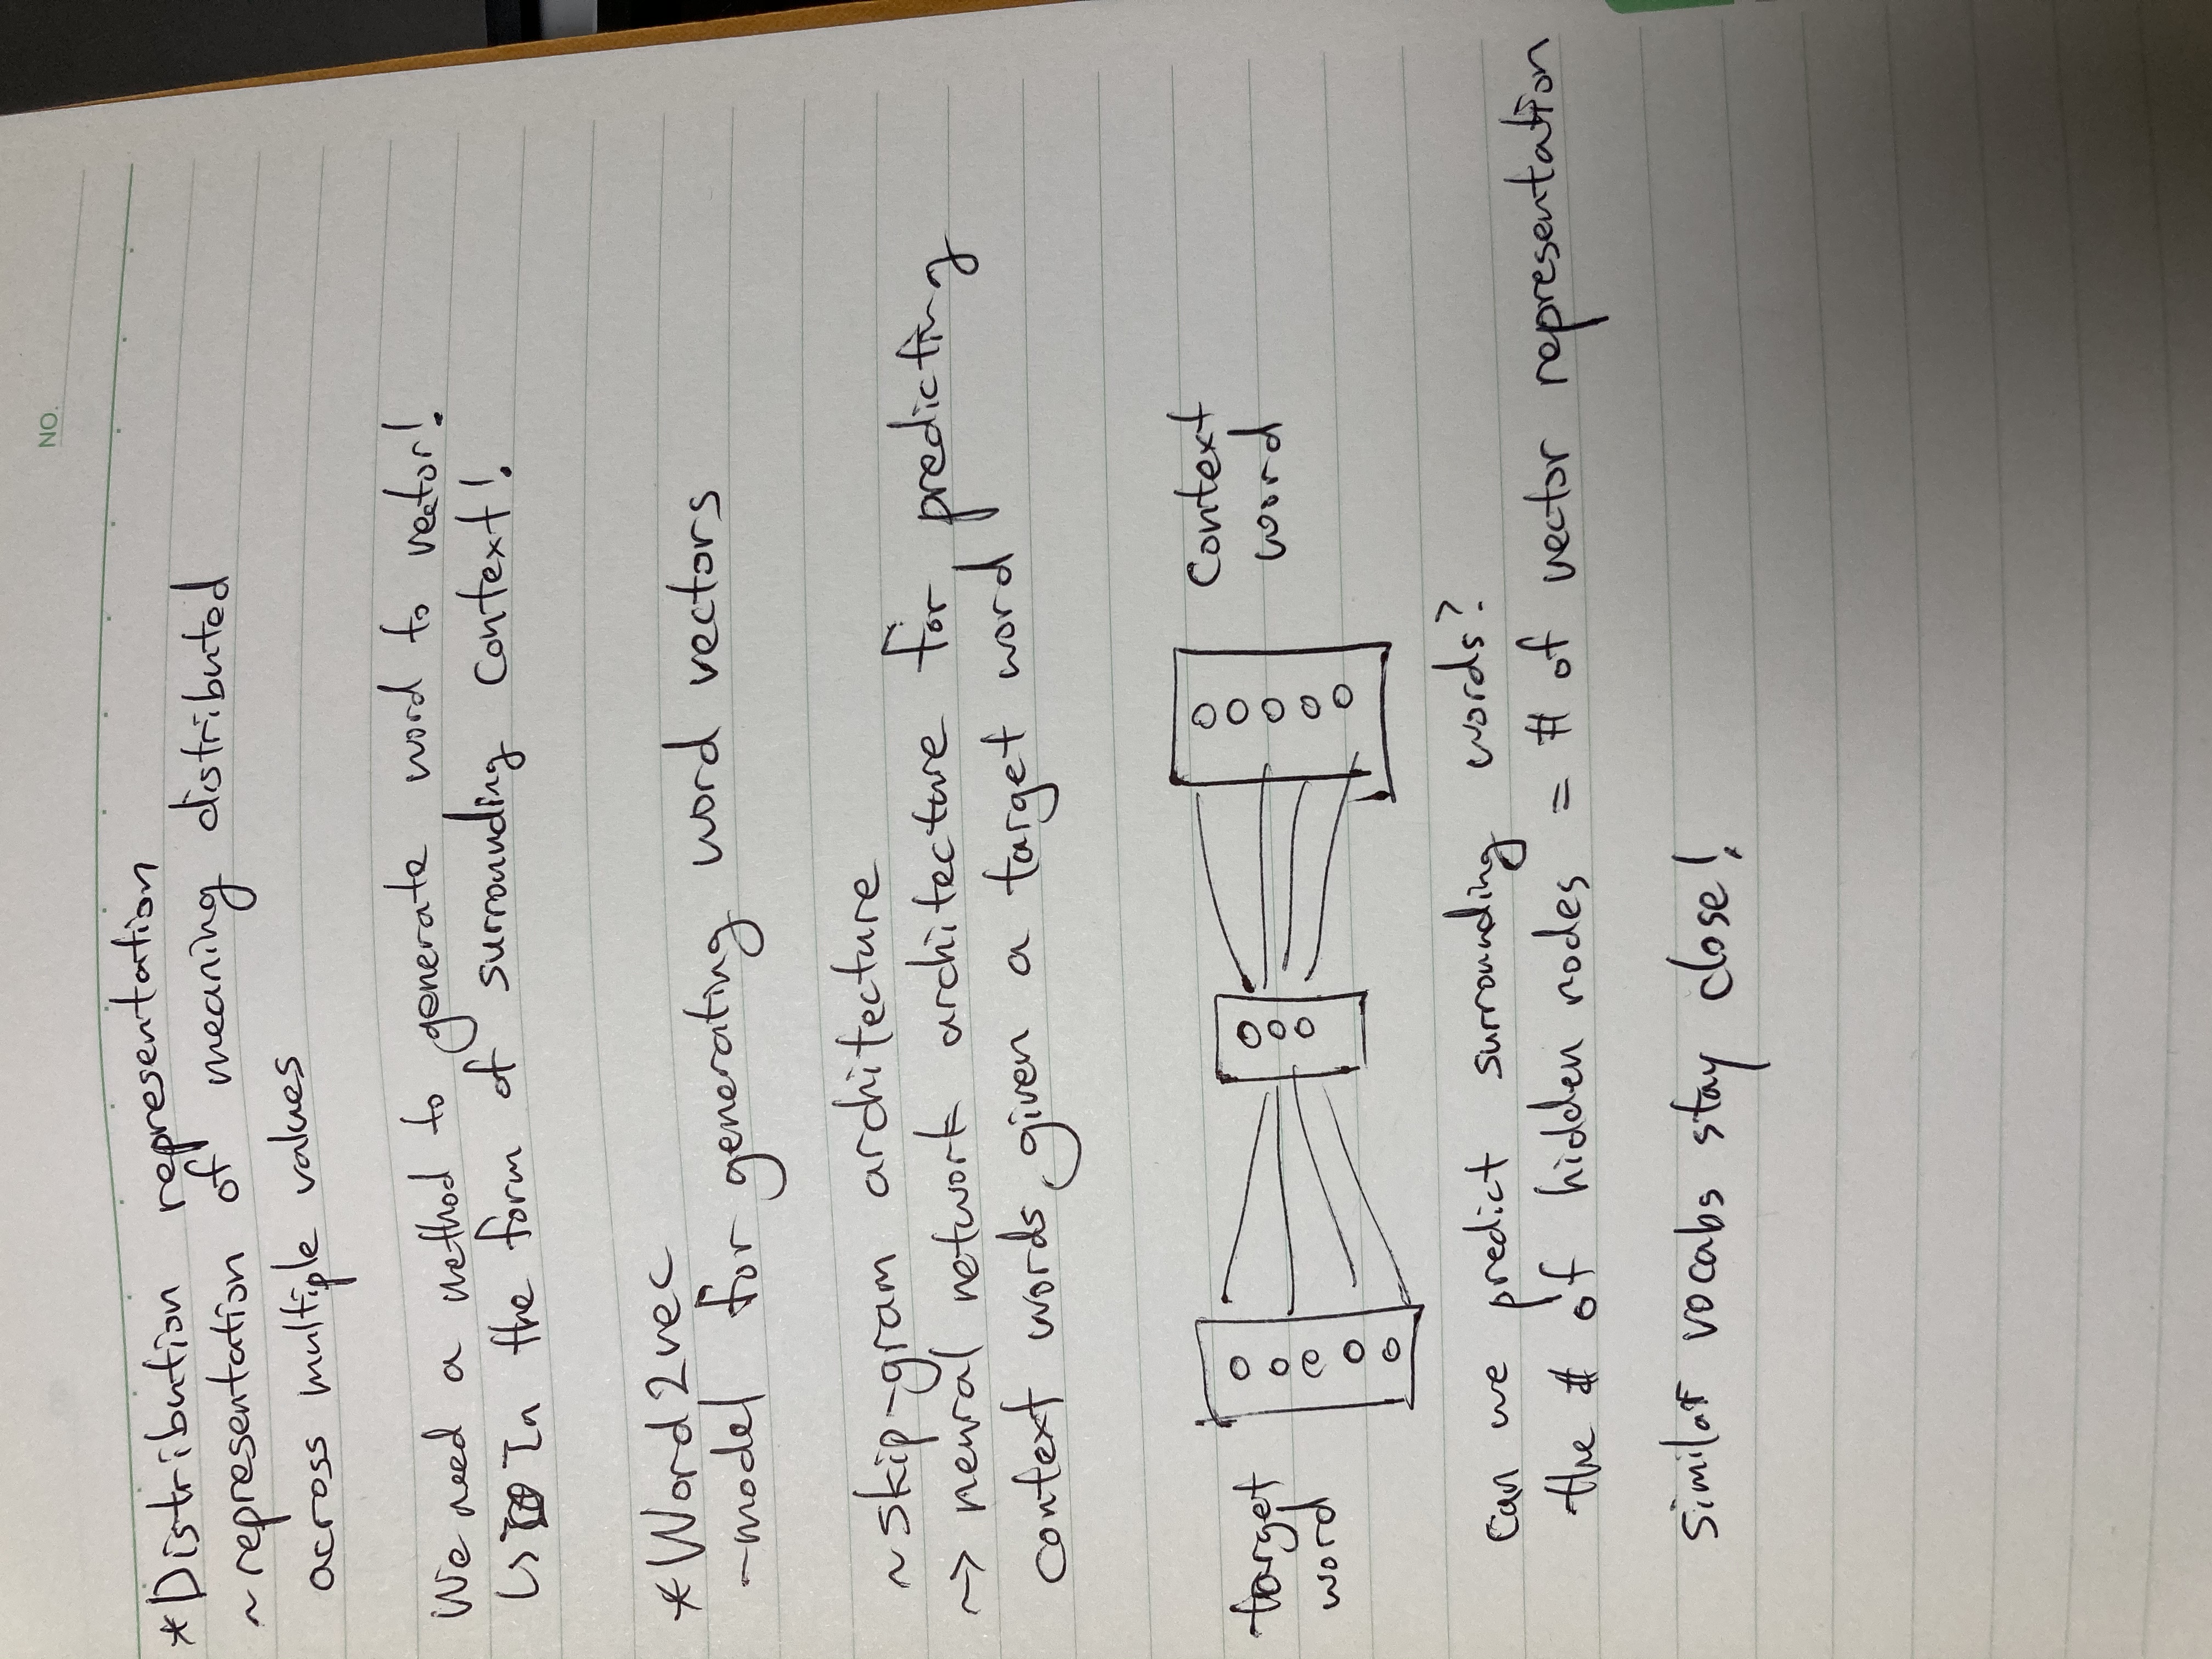 NO.
*Distribution representation
~representation of meaning distributed
across multiple values
We need a method to generate word to vector!
↳ In the form of surrounding context!
*Word2vec
-model for generating word vectors
~skip-gram architecture
~> neural network architecture for predicting
context words given a target word
target
word
Context
word
can we predict surrounding words?
the # of hidden nodes = # of vector representation
similar vocabs stay close!